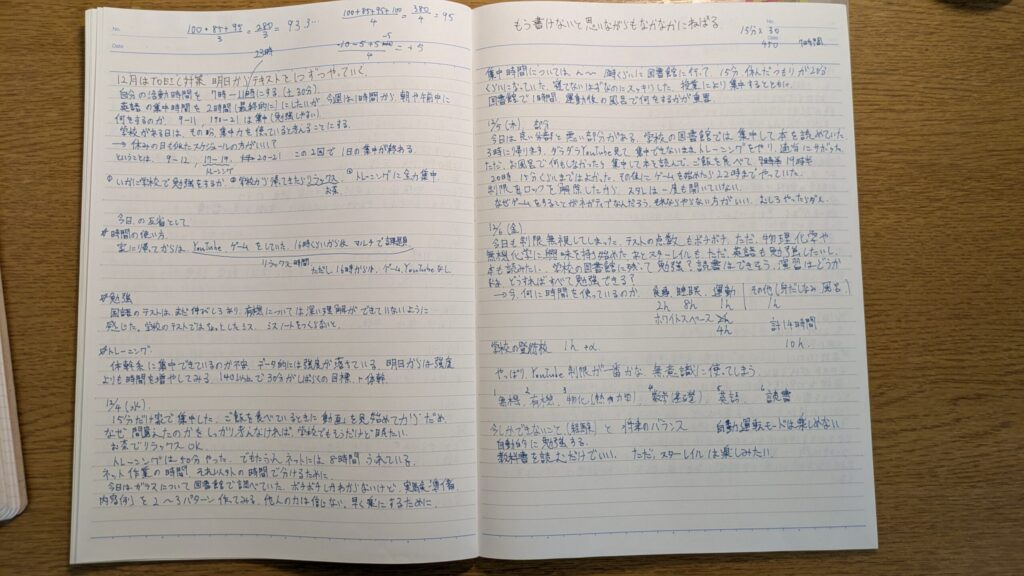 No.
Date
100+85+95/3 = 280/3 = 93.3…
100+85+95+100/4 = 380/4 = 95
23時
12月はTOEIC対策 明日からテキストを1つずつやっていく。
自分の活動時間を 7時〜11時にする (±30分)
英語の集中時間を2時間(最終的に)にしたいが、今週は1時間から 朝や午前中に
何をするのか、9-11, 19:-21は集中(勉強しない)
学校がある日は、その時、集中力を使っていると考えることにする。
→休みの日も似たスケジュールの方がいい?
ということは、9〜12, 17〜19, 20-21 この2回で1日の集中が終わる。
トレーニング
①いかに学校で勉強をするか ②学校から帰ってきたらリラックス ③トレーニングに全力集中
お茶
今日の反省として
#時間の使い方
家に帰ってからは、YouTube ゲームをしていた。16時くらいから夜 マルチで課題
リラックス時間
ただし、16時からは、ゲーム、YouTubeなし
#勉強
国語のテストは、まだ伸びしろあり、有機については深い理解ができていないように
感じた。学校のテストではちょっとしたミス、ミスノートをつくらないと。
#トレーニング
体幹系に集中できているのか不安 データ的には強度が落ちている。明日からは強度
よりも時間を増やしてみる。140以上で30分がしばらくの目標、+体幹、
12/4 (水)
15分だけ家で集中した。ご飯を食べているときに動画を見始めてガリダだめ
なぜ間違えたのかをしっかり考えなければ、学校でもうだけど眠たい。
お茶でリラックスOK
トレーニングは50分やった。でもたぶん、ネットには8時間うばれている。
ネット作業の時間、それ以外の時間で分けるために、
今日はガラスについて図書館で調べていた、ボチボチしかわからないけど、実験を準備、
内容(例)を2〜3パターン作ってみる。他人の力は信じない、早く楽にするために、
もう書けないと思いながらもなかなかにねばる
No.
Date
15分×30
450 7時間
集中時間については、ん〜 8時くらいに図書館に行って、15分休んだつもりが20分
くらいになっていた、寝てないはずなのにスッキリした、授業により集中するとともに、
図書館で1時間、運動後の風呂で何をするかが重要
12/5 (木)
今日は良い部分と悪い部分がある。学校の図書館では集中して本を読めていた
3時に帰ります。ダラダラYouTube見て、集中できないままトレーニングをやり、適当にサボった。
ただ、お風呂で何もしなかった分 集中して本を読んで、ご飯を食べて 19時半
20時15分くらいまではよかった。その後にゲームを始めたら22時までやっていた、
制限をロックを解除したから、スタレは一度も開いていない、
なぜゲームをすることがネガティブなんだろう、それならやらない方がいい、むしろやったらダメ、
12/6 (金)
今日も制限無視してしまった、テストの点数もボチボチ、ただ、物理化学や
無機化学に興味を持ち始めた、あとスターレイルも、ただ、英語も勉強したいし、
本も読みたい、学校の図書館に残って勉強?読書はできそう、演習はどうか
なぁ、どうすればすべて勉強できる?
→今、何に時間を使っているのか 食事、睡眠、運動 その他(身だしなみ 風呂)
2h 8h 1h 1h
ホワイトスペース
4h
計14時間
学校の登校 1h +α 10h
やっぱり、YouTube制限が一番かな、無意識に使ってしまう、
1無機、2有機、3物化(熱力)、4数学(基礎)、5英語、6読書
今しかできないこと(経験)と将来のバランス 自動運転モードは楽しめない
自動的に勉強する、
教科書を読むだけでいい、ただ、スターレイルは楽しみたい、